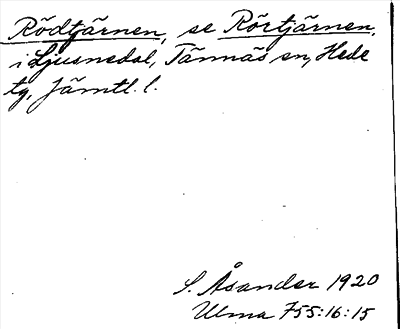 Rödtjärnen, se Rörtjärnen,
i Ljusnedal, Tännäs sn, Hede
tg, Jämtl. l.
S. Åsander 1920
Ulma 755:16:15